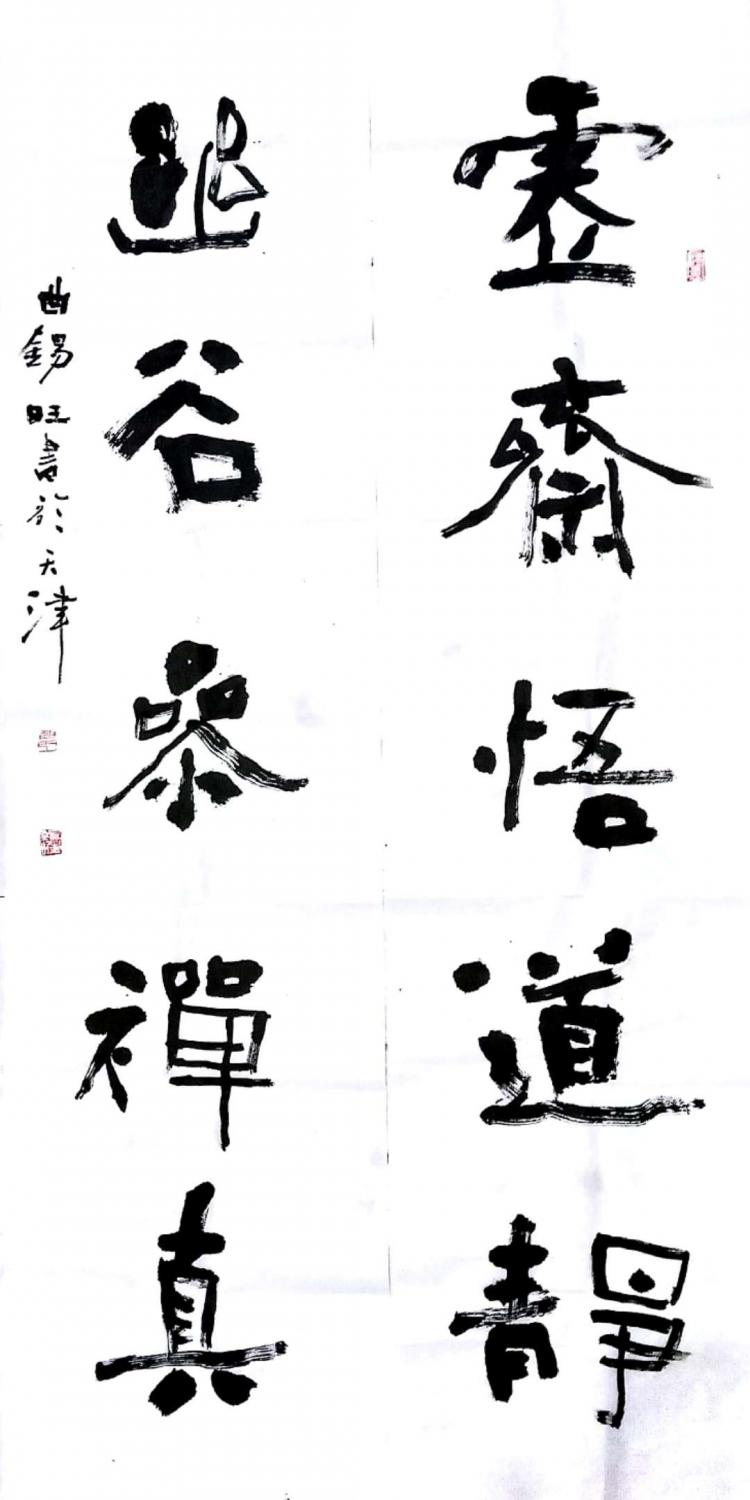 虚齋悟道靜
幽谷參禪真
曲錫旺書於天津